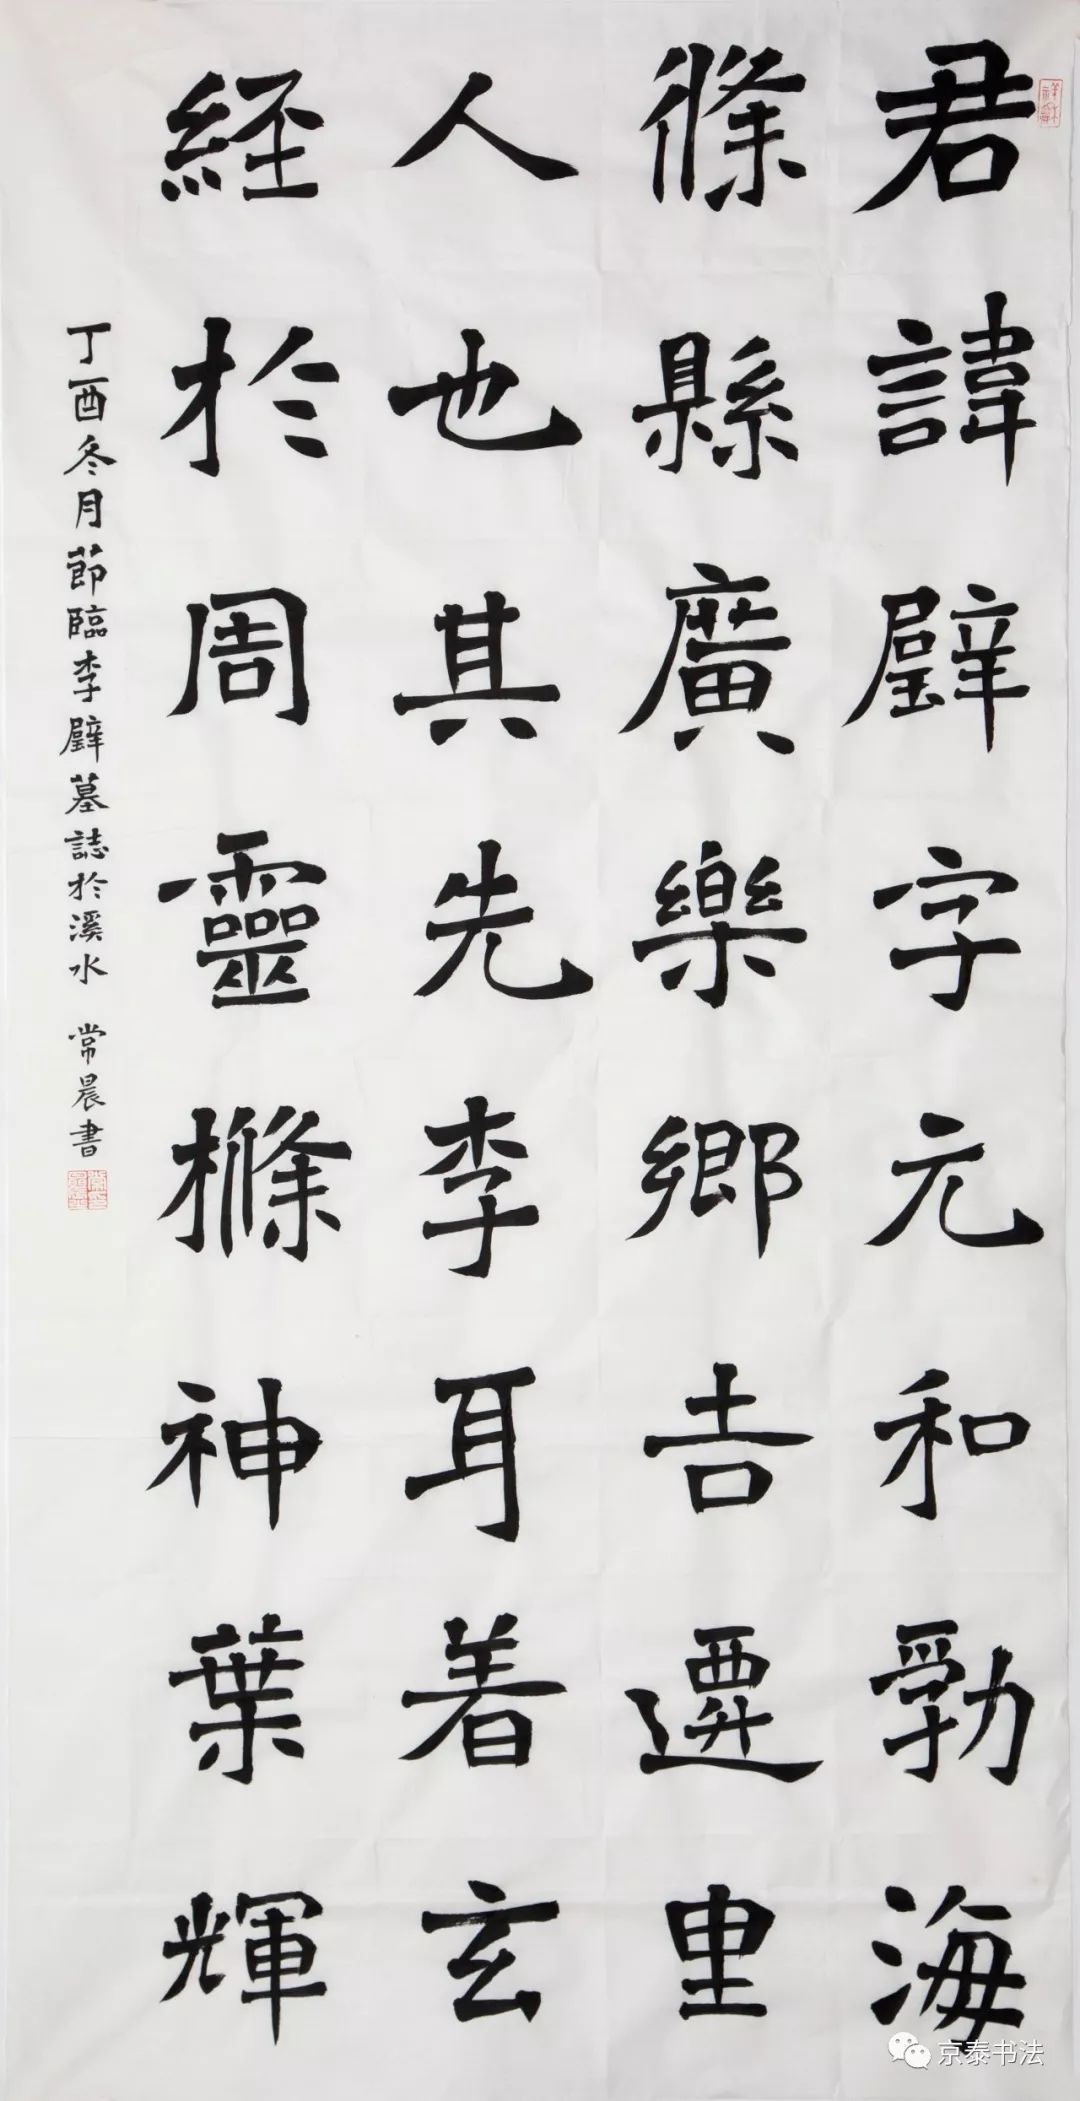 君諱璧字元和勃海
脩縣廣樂鄉吉遷里
人也其先李耳着玄
經於周靈樤神葉輝
丁酉冬月節臨李璧墓誌於溪水 常晨書
京泰书法